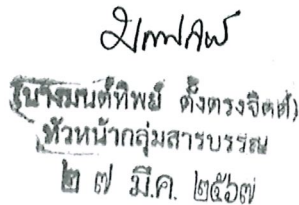 (นางมนต์ทิพย์ ตั้งตรงจิตต์)
หัวหน้ากลุ่มสารบรรณ
๒ ๗ มี.ค. ๒๕๖๗